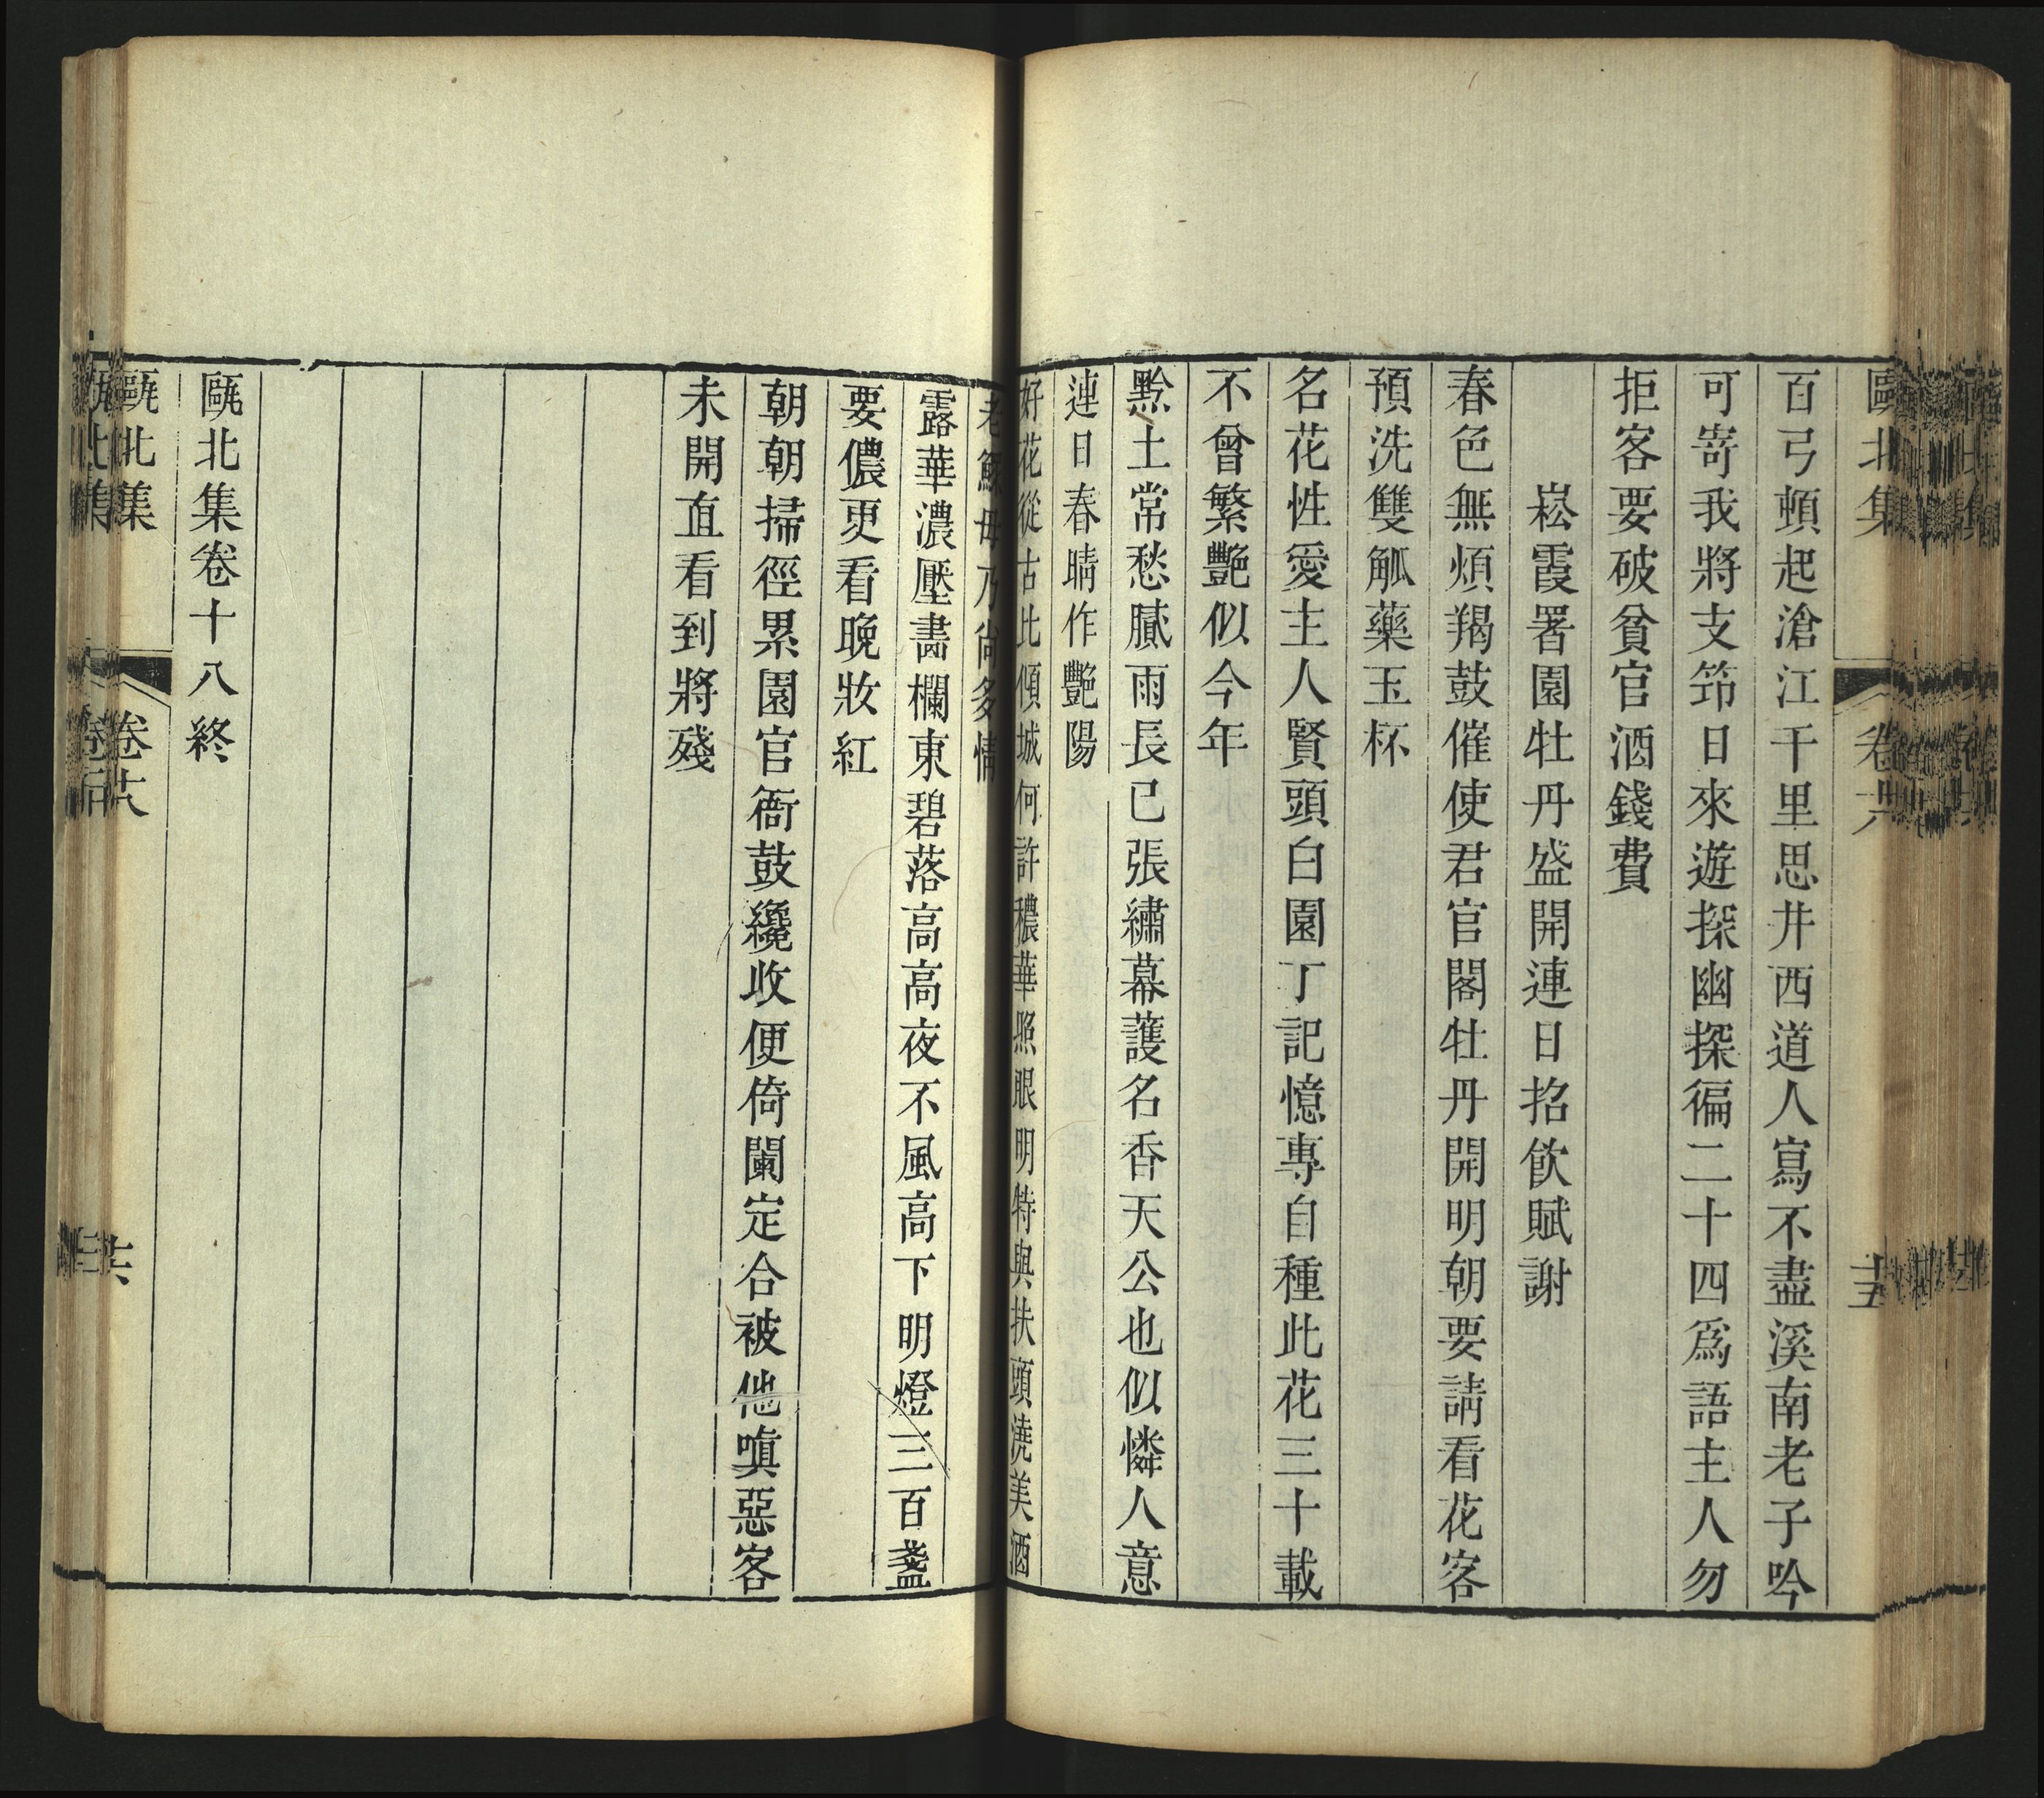 甌北集 卷十八 十五
百弓頓起滄江千里思井西道人寫不盡溪南老子吟
可嵜我將支笻日來遊探幽探徧二十四爲語主人勿
拒客要破貧官酒錢費
崧霞署園牡丹盛開連日招飲賦謝
春色無煩羯鼓催使君官閣牡丹開明朝要請看花客
預洗雙觚藥玉杯
名花性愛主人賢頭白園丁記憶專自種此花三十載
不曾繁艷似今年
黔土常愁膩雨長已張繡幕護名香天公也似憐人意
連日春晴作艷陽
好花從古比傾城何許穠華照眼明特與扶頭澆美酒
老穌毋乃尚多情
露華濃壓畵欄東碧落高高夜不風高下明燈三百盞
要儂更看晚妝紅
朝朝掃徑累園官衙鼓纔收便倚闌定合被他嗔惡客
未開直看到將殘
甌北集卷十八終
甌北集 卷十八 十六